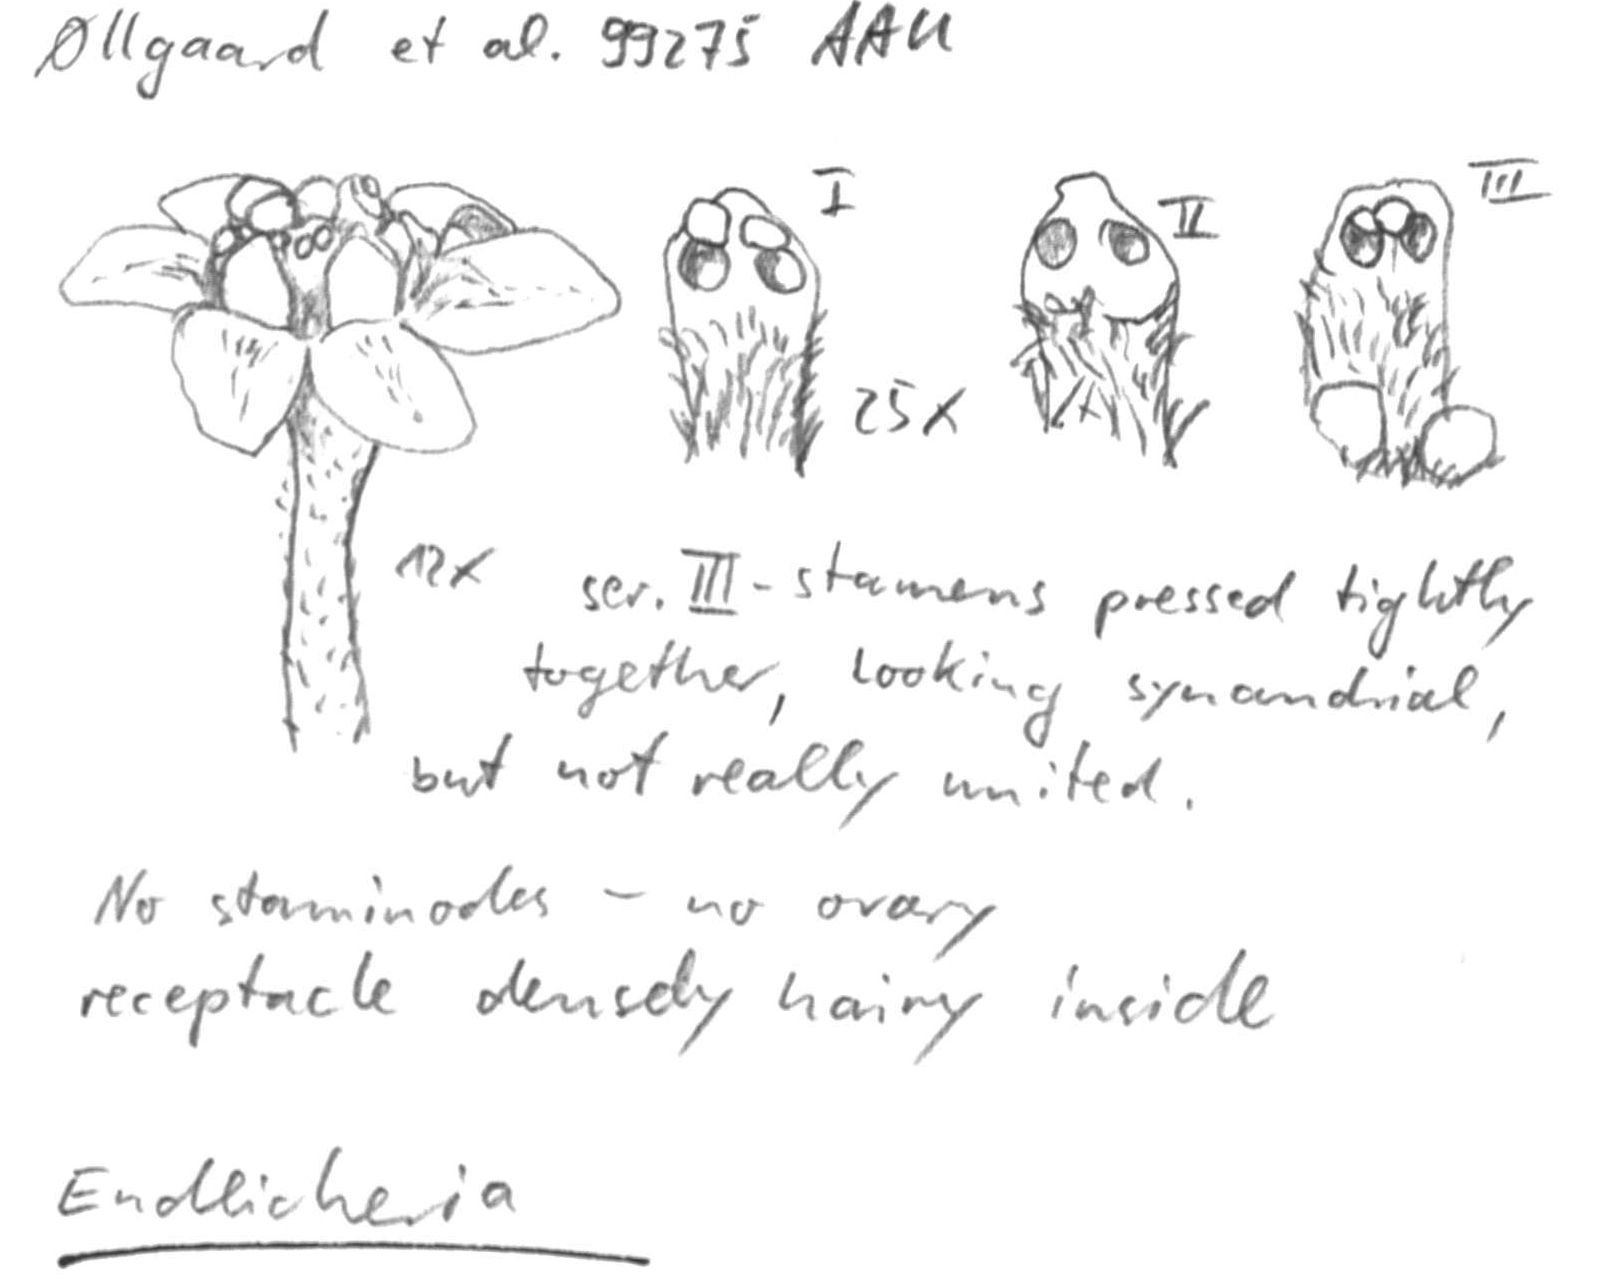 Øllgaard et al. 99275 AAU
I
II
III
25x
12x
ser. III - stamens pressed tightly
together, looking synandrial,
but not really united.
No staminodes - no ovary
receptacle densely hairy inside
Endlicheria